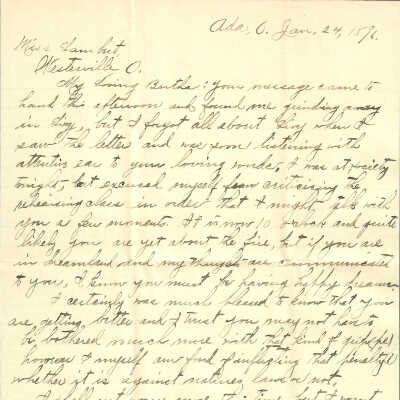 Ada, O. Jan. 24, 1896.
Miss Lambert
Westerville O.
My Loving Bertha: your message came to
hand this afternoon and found me grinding away
in Livy, but I forgot all about Livy when I
saw the letter and was soon listening with
attentive ear to your loving words, I was at society
tonight, but excused myself from criticizing the
rehearsing class in order that I might talk with
you a few moments. It is now 10 o'clock and quite
likely you are yet about the fire, but if you are
in dreamland and my thoughts are communicated
to you, I know you must be having happy dreams.
I certainly was much pleased to know that you
are getting better and I trust you may not have to
be bothered much more with that kind of
however I myself am fond of that penalty
whether it is against natures laws or not.
I shall not